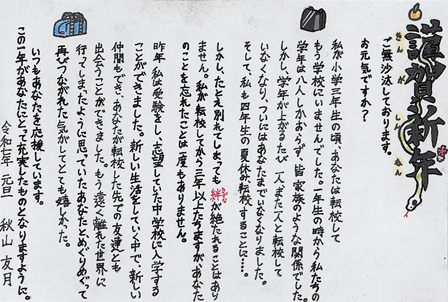 謹賀新年
きんがしんねん
ご無沙汰しております。
お元気ですか？
私が小学三年生の頃、あなたは転校して
もう学校にいませんでした。一年生の時から私たちの
学年は八人しかおらず、皆家族のような関係でした。
しかし、学年が上がるたび一人また一人と転校して
いなくなり、ついにはあなたまでいなくなりました。
そして、私も四年生の夏休み転校することに…。
しかし、たとえ別れてしまっても絆が絶たれることはあり
きずな
ません。私が転校してから三年以上たちますがあなた
のことを忘れたことは一度もありません。
昨年、私は受験をし、志望していた中学校に入学する
ことができました。新しい生活をしていく中で、新しい
仲間もでき、あなたが転校した先での友達とも
出会うことができました。もう遠く離れた世界に
行ってしまったように思っていたあなたとめぐりめぐって
再びつながれた気がしてとても嬉しかった。
いつもあなたを応援しています。
この一年があなたにとって充実したものとなりますように。
令和七年 元旦 秋山友月